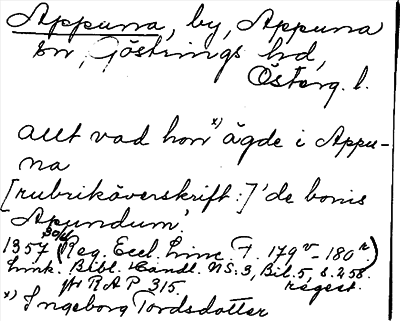 Appuna, by, Appuna
sn, Göstrings hd,
Österg. l.
allt vad hon x) ägde i Appu-
na
[rubriköverskrift:] 'de bonis
Apundum'.
1357 30/4 (Reg. Eccl. Linc F. 179v-180r)
Link. Bibl. Handl. NS:3, Bil. 5, s. 258.
jfr RAP 315. regest.
x) Ingeborg Tordsdotter